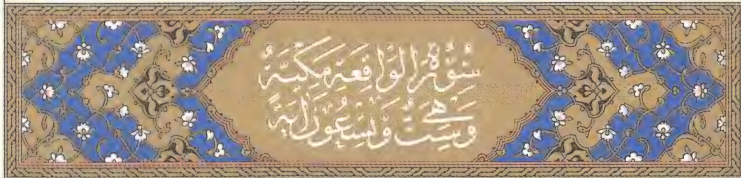 سُورَةُ الْوَاقِعَةِ مَكِّيَّةٌ
وَهِيَ سِتٌّ وَتِسْعُونَ آيَةً